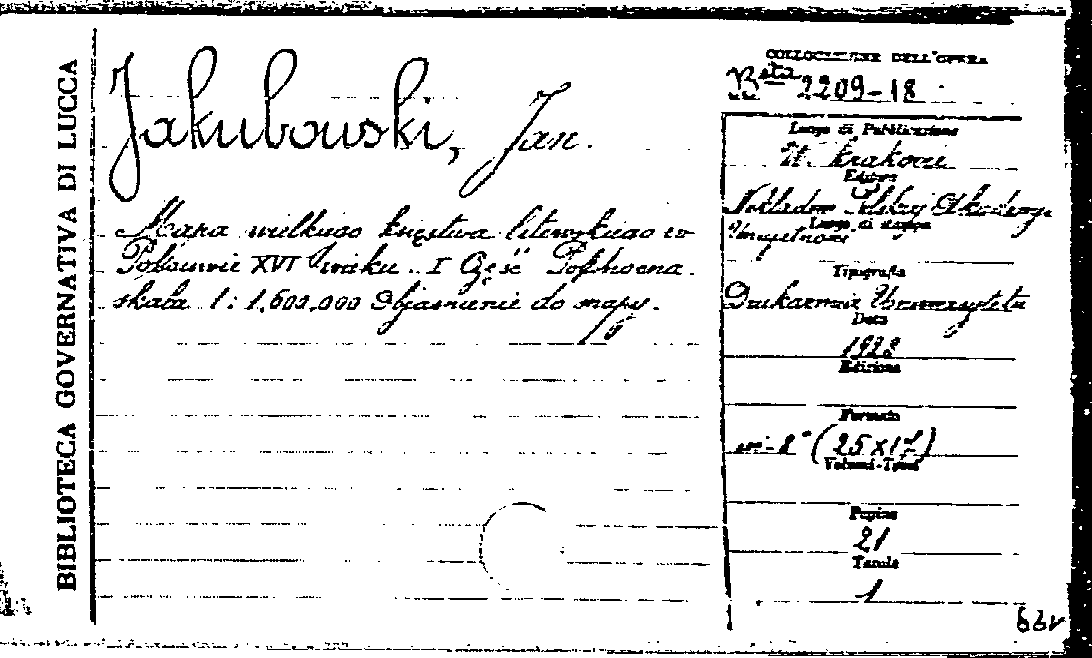 BIBLIOTECA GOVERNATIVA DI LUCCA
Jakubowski, Jan.
Mapa wielkiego księstwa litewskiego w
Połowie XVI wieku. I Część Północna.
skala 1: 1,600,000 Objaśnienie do mapy.
COLLOCAZIONE DELL'OPERA
Bsta 2209-18
Luogo di Pubblicazione
W. Krakowie
Editore
Nakładem Polskiej Akademji
Luogo di stampa
Umiejetnosci
Tipografia
Drukarnia Uniwersytetu
Data
1928
Edizione
Formato
in-8° (25x17)
Volumi-Tomi
Pagine
21
Tavole
1